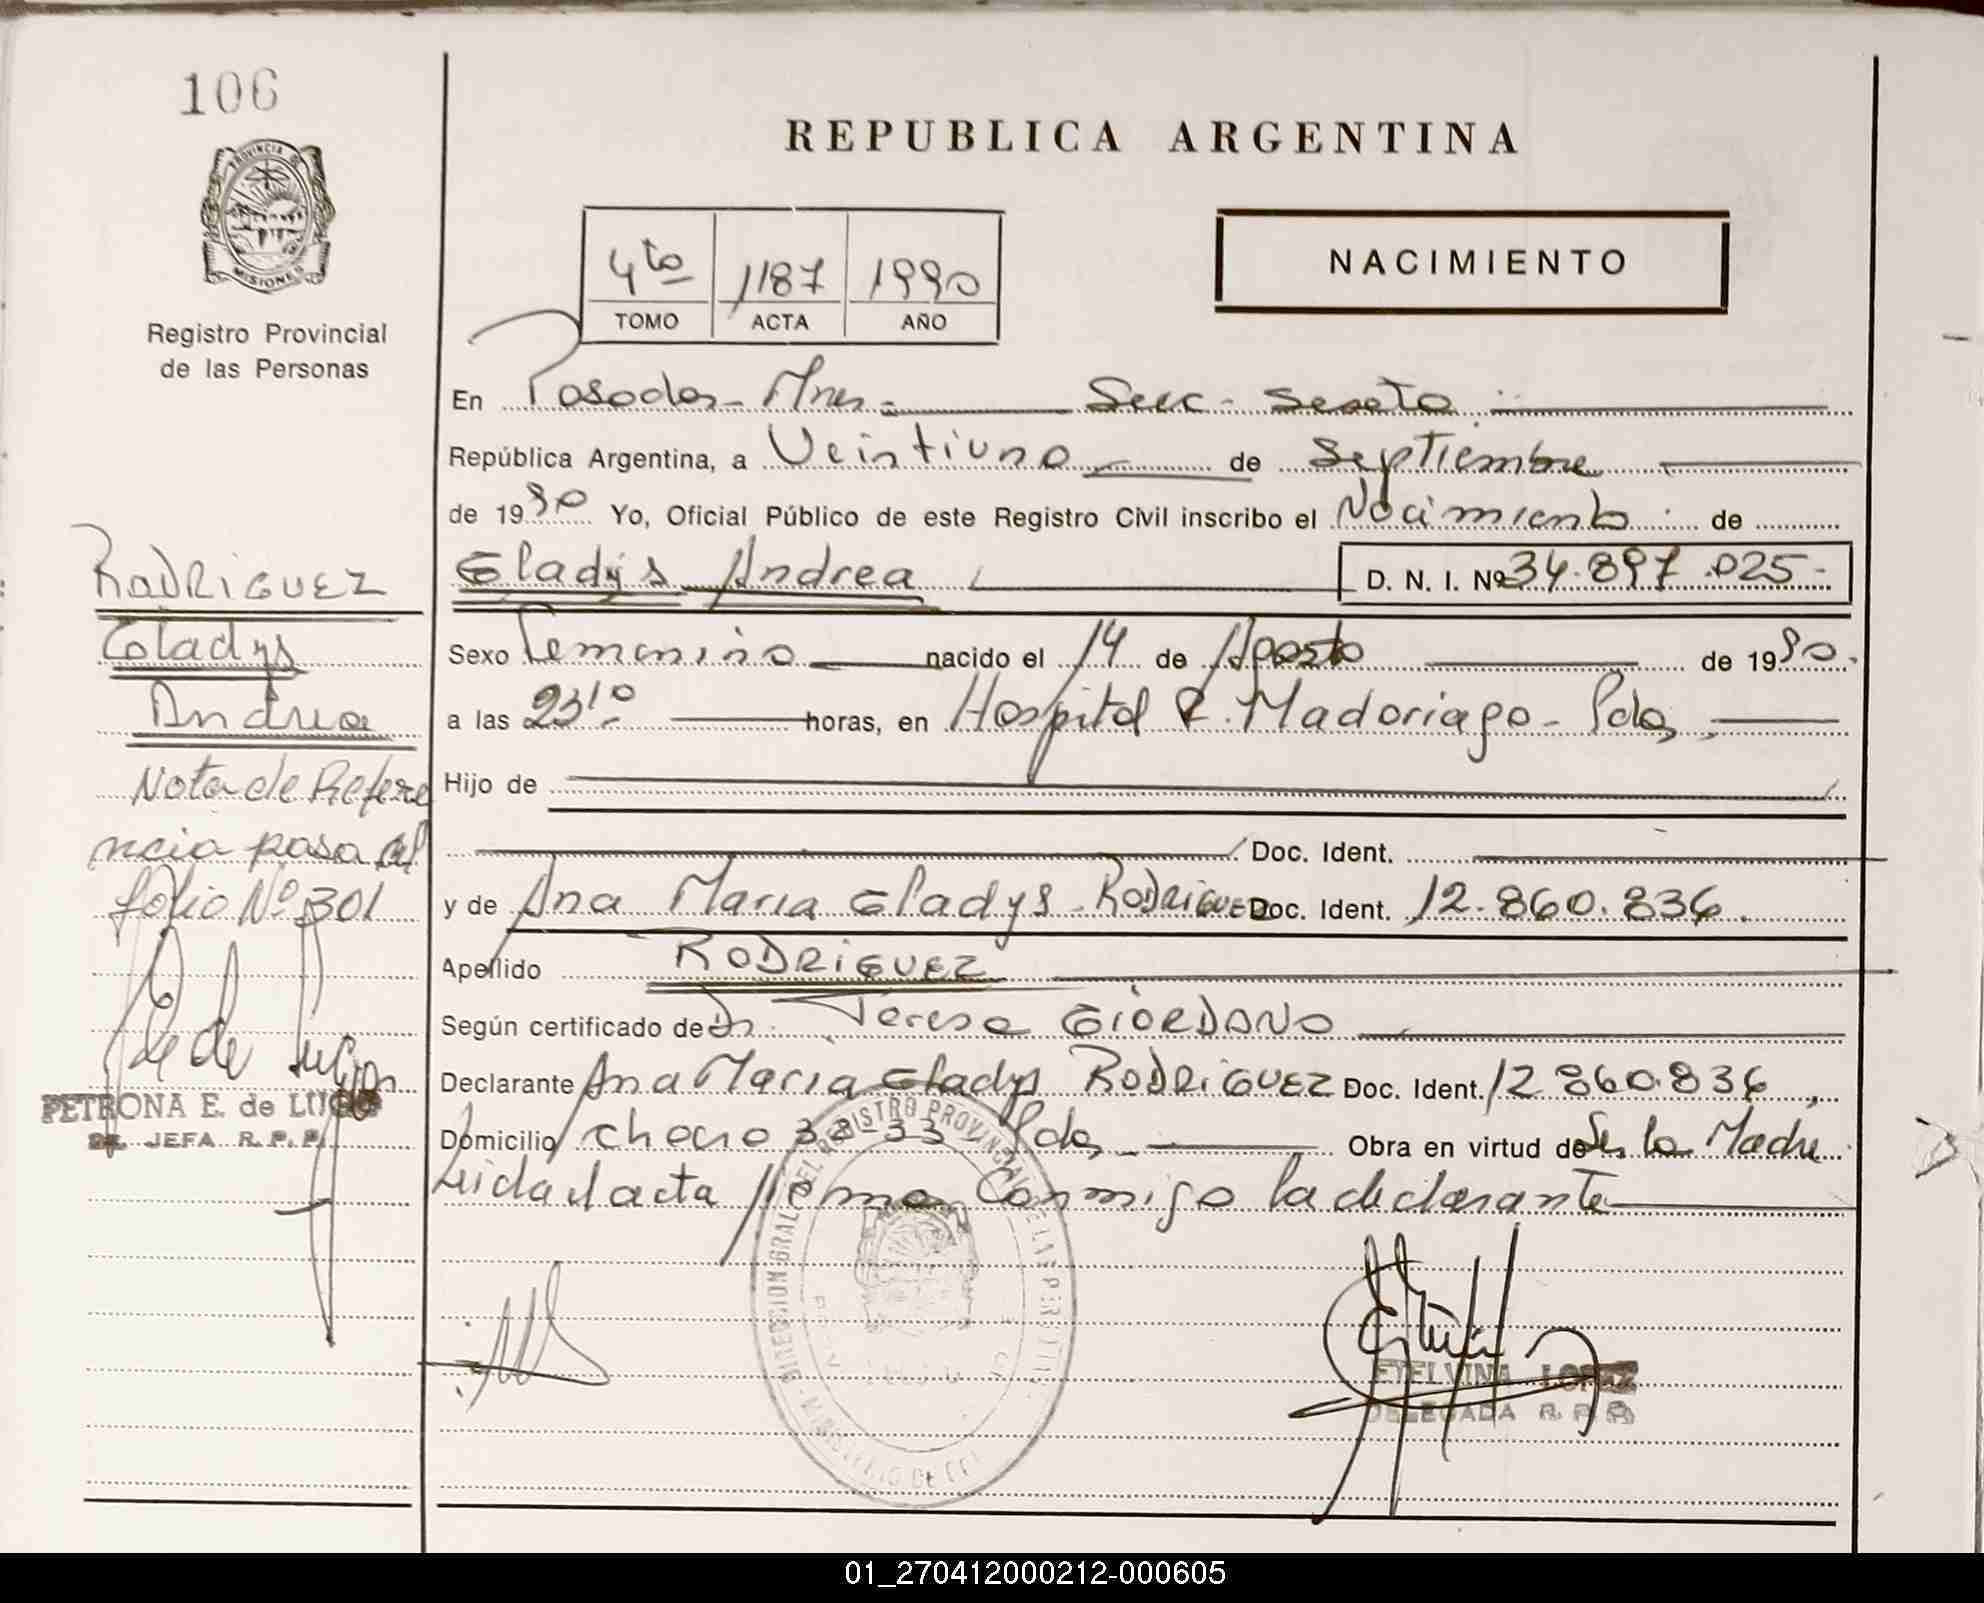 106
REPUBLICA ARGENTINA
PROVINCIA DE
MISIONES
Registro Provincial
de las Personas
4to 1187 1990
TOMO ACTA AÑO
NACIMIENTO
En Posadas - Mnes - Secc - Sexta
República Argentina, a Veintiuno de Septiembre
de 1990 Yo, Oficial Público de este Registro Civil inscribo el Nacimiento de
Gladys Andrea D. N. I. Nº 34.897.025-
Sexo Femenino nacido el 14 de Agosto de 1990.
a las 23,10 horas, en Hospital R. Madariaga - Pdas,
Hijo de
Doc. Ident.
y de Ana Maria Gladys - RODRIGUEZ Doc. Ident. 12.860.836.
Apellido RODRIGUEZ
Según certificado de Dr. Teresa GIORDANO
Declarante Ana Maria Gladys RODRIGUEZ Doc. Ident. 12.860.836,
Domicilio Chaco 3233 Pdas, Obra en virtud de Ser la Madre
Leida el acta firma conmigo la declarante
RODRIGUEZ
Gladys
Andrea
Nota de Refere
ncia pasa al
folio Nº 301
PETRONA E. de LUGO
JEFA R. P. P.
DIRECCION GRAL. DEL REGISTRO PROVINCIAL DE LAS PERSONAS
MINISTERIO DE
ETELVINA LOPEZ
DELEGADA R. P. P.
01_270412000212-000605